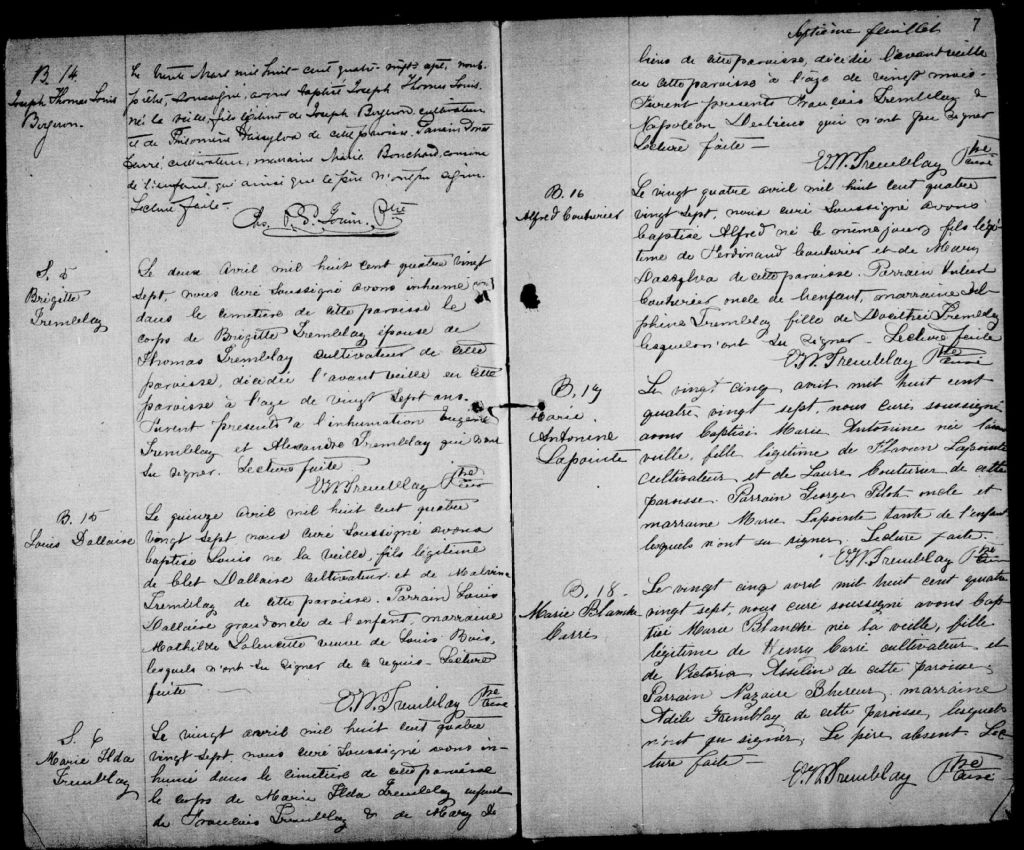 B. 14
Joseph Thomas Louis
Bergeron.
Le trente Mars mil huit-cent quatre-vingt-sept, nous
prêtre, soussigné, avons baptisé Joseph Thomas Louis
né la veille, fils légitime de Joseph Bergeron, cultivateur
et de Philomène Dassylva de cette paroisse. Parrain
Carré, cultivateur, marraine Marie Bouchard, cousine
de l'enfant, qui ainsi que le père n'ont pu signer.
Lecture faite-
Ptre
S. 5
Brigitte
Tremblay
Le deux avril mil huit cent quatre vingt
Sept, nous curé Soussigné avons inhumé
dans le cimetière de cette paroisse le
corps de Brigitte Tremblay épouse de
Thomas Tremblay cultivateur de cette
paroisse, décédée l'avant veille en cette
paroisse à l'age de vingt Sept ans.
Furent presents à l'inhumation
Tremblay et Alexandre Tremblay qui n'ont
Su signer. Lecture faite
E.W. Tremblay Ptre
curé
B. 15
Louis Dallaire
Le quinze avril mil huit cent quatre
vingt Sept nous curé Soussigné avons
baptisé Louis né la veille, fils légitime
de Clet Dallaire cultivateur et de Malvina
Tremblay de cette paroisse. Parrain Louis
Dallaire grandoncle de l'enfant, marraine
Mathilde veuve de Louis Bois,
lesquels n'ont Su signer de ce requis- Lecture
faite -
E.W. Tremblay Ptre
curé
S. 6
Marie Ilda
Tremblay
Le vingt avril mil huit cent quatre
vingt Sept, nous curé Soussigné avons in-
humé dans le cimetière de cette paroisse
le corps de Marie Ilda Tremblay enfant
de Francois Tremblay & de Mary
Septième feuillet 7
de cette paroisse, décédée l'avant veille
en cette paroisse à l'âge de vingt mois
Furent presents François Tremblay &
Napoléon Desbiens qui n'ont pu signer
Lecture faite -
E.W. Tremblay Ptre
curé
B. 16
Alfred Couturier
Le vingt quatre avril mil huit cent quatre
vingt Sept, nous curé Soussigné avons
baptisé Alfred né le même jour, fils légi-
time de Ferdinand Couturier et de Mary
Dassylva de cette paroisse. Parrain
Couturier oncle de l'enfant, marraine Del-
phine Tremblay fille de Tremblay
lesquels n'ont Su signer - Lecture faite
E.W. Tremblay Ptre
curé
B. 17
Marie
Antonine
Lapointe
Le vingt cinq avril mil huit cent
quatre vingt sept, nous curé soussigné
avons baptisé Marie Antonine née l'avant
veille, fille légitime de Flavien Lapointe
cultivateur et de Laure Couturier de cette
paroisse. Parrain George Pilote oncle et
marraine Marie Lapointe tante de l'enfant
lesquels n'ont su signer. Lecture faite.
E.W. Tremblay Ptre
curé
B. 18
Marie Blanche
Carré
Le vingt cinq avril mil huit cent quatre
vingt sept, nous curé soussigné avons bap-
tisé Marie Blanche née la veille, fille
légitime de Henry Carré cultivateur et
de Victoria Asselin de cette paroisse.
Parrain Nazaire Bhereur, marraine
Adèle Tremblay de cette paroisse, lesquels
n'ont pu signer. Le père absent Lec-
ture faite -
E.W. Tremblay Ptre
curé